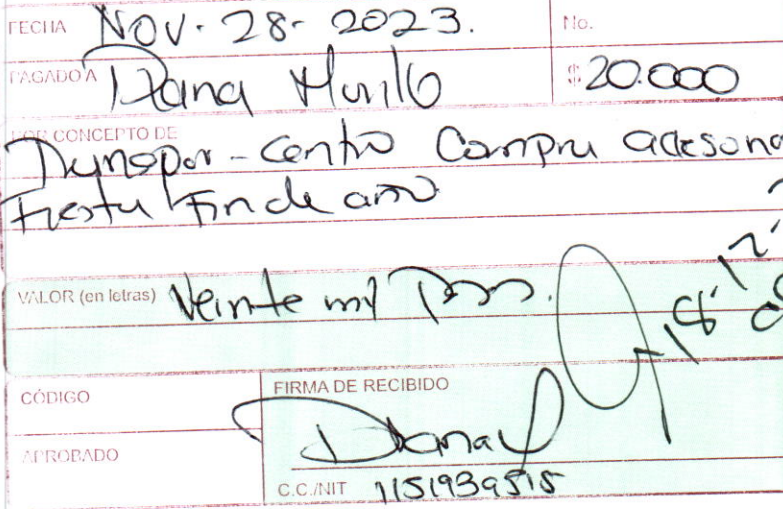 FECHA NOV. 28. 2023. No.
PAGADO A Diana Murillo $ 20.000
POR CONCEPTO DE
Transpor - Centro Compra accesorio
Fiesta Fin de año
VALOR (en letras) Veinte mil Pesos.
CÓDIGO FIRMA DE RECIBIDO
Diana
APROBADO
C.C./NIT 1151939515